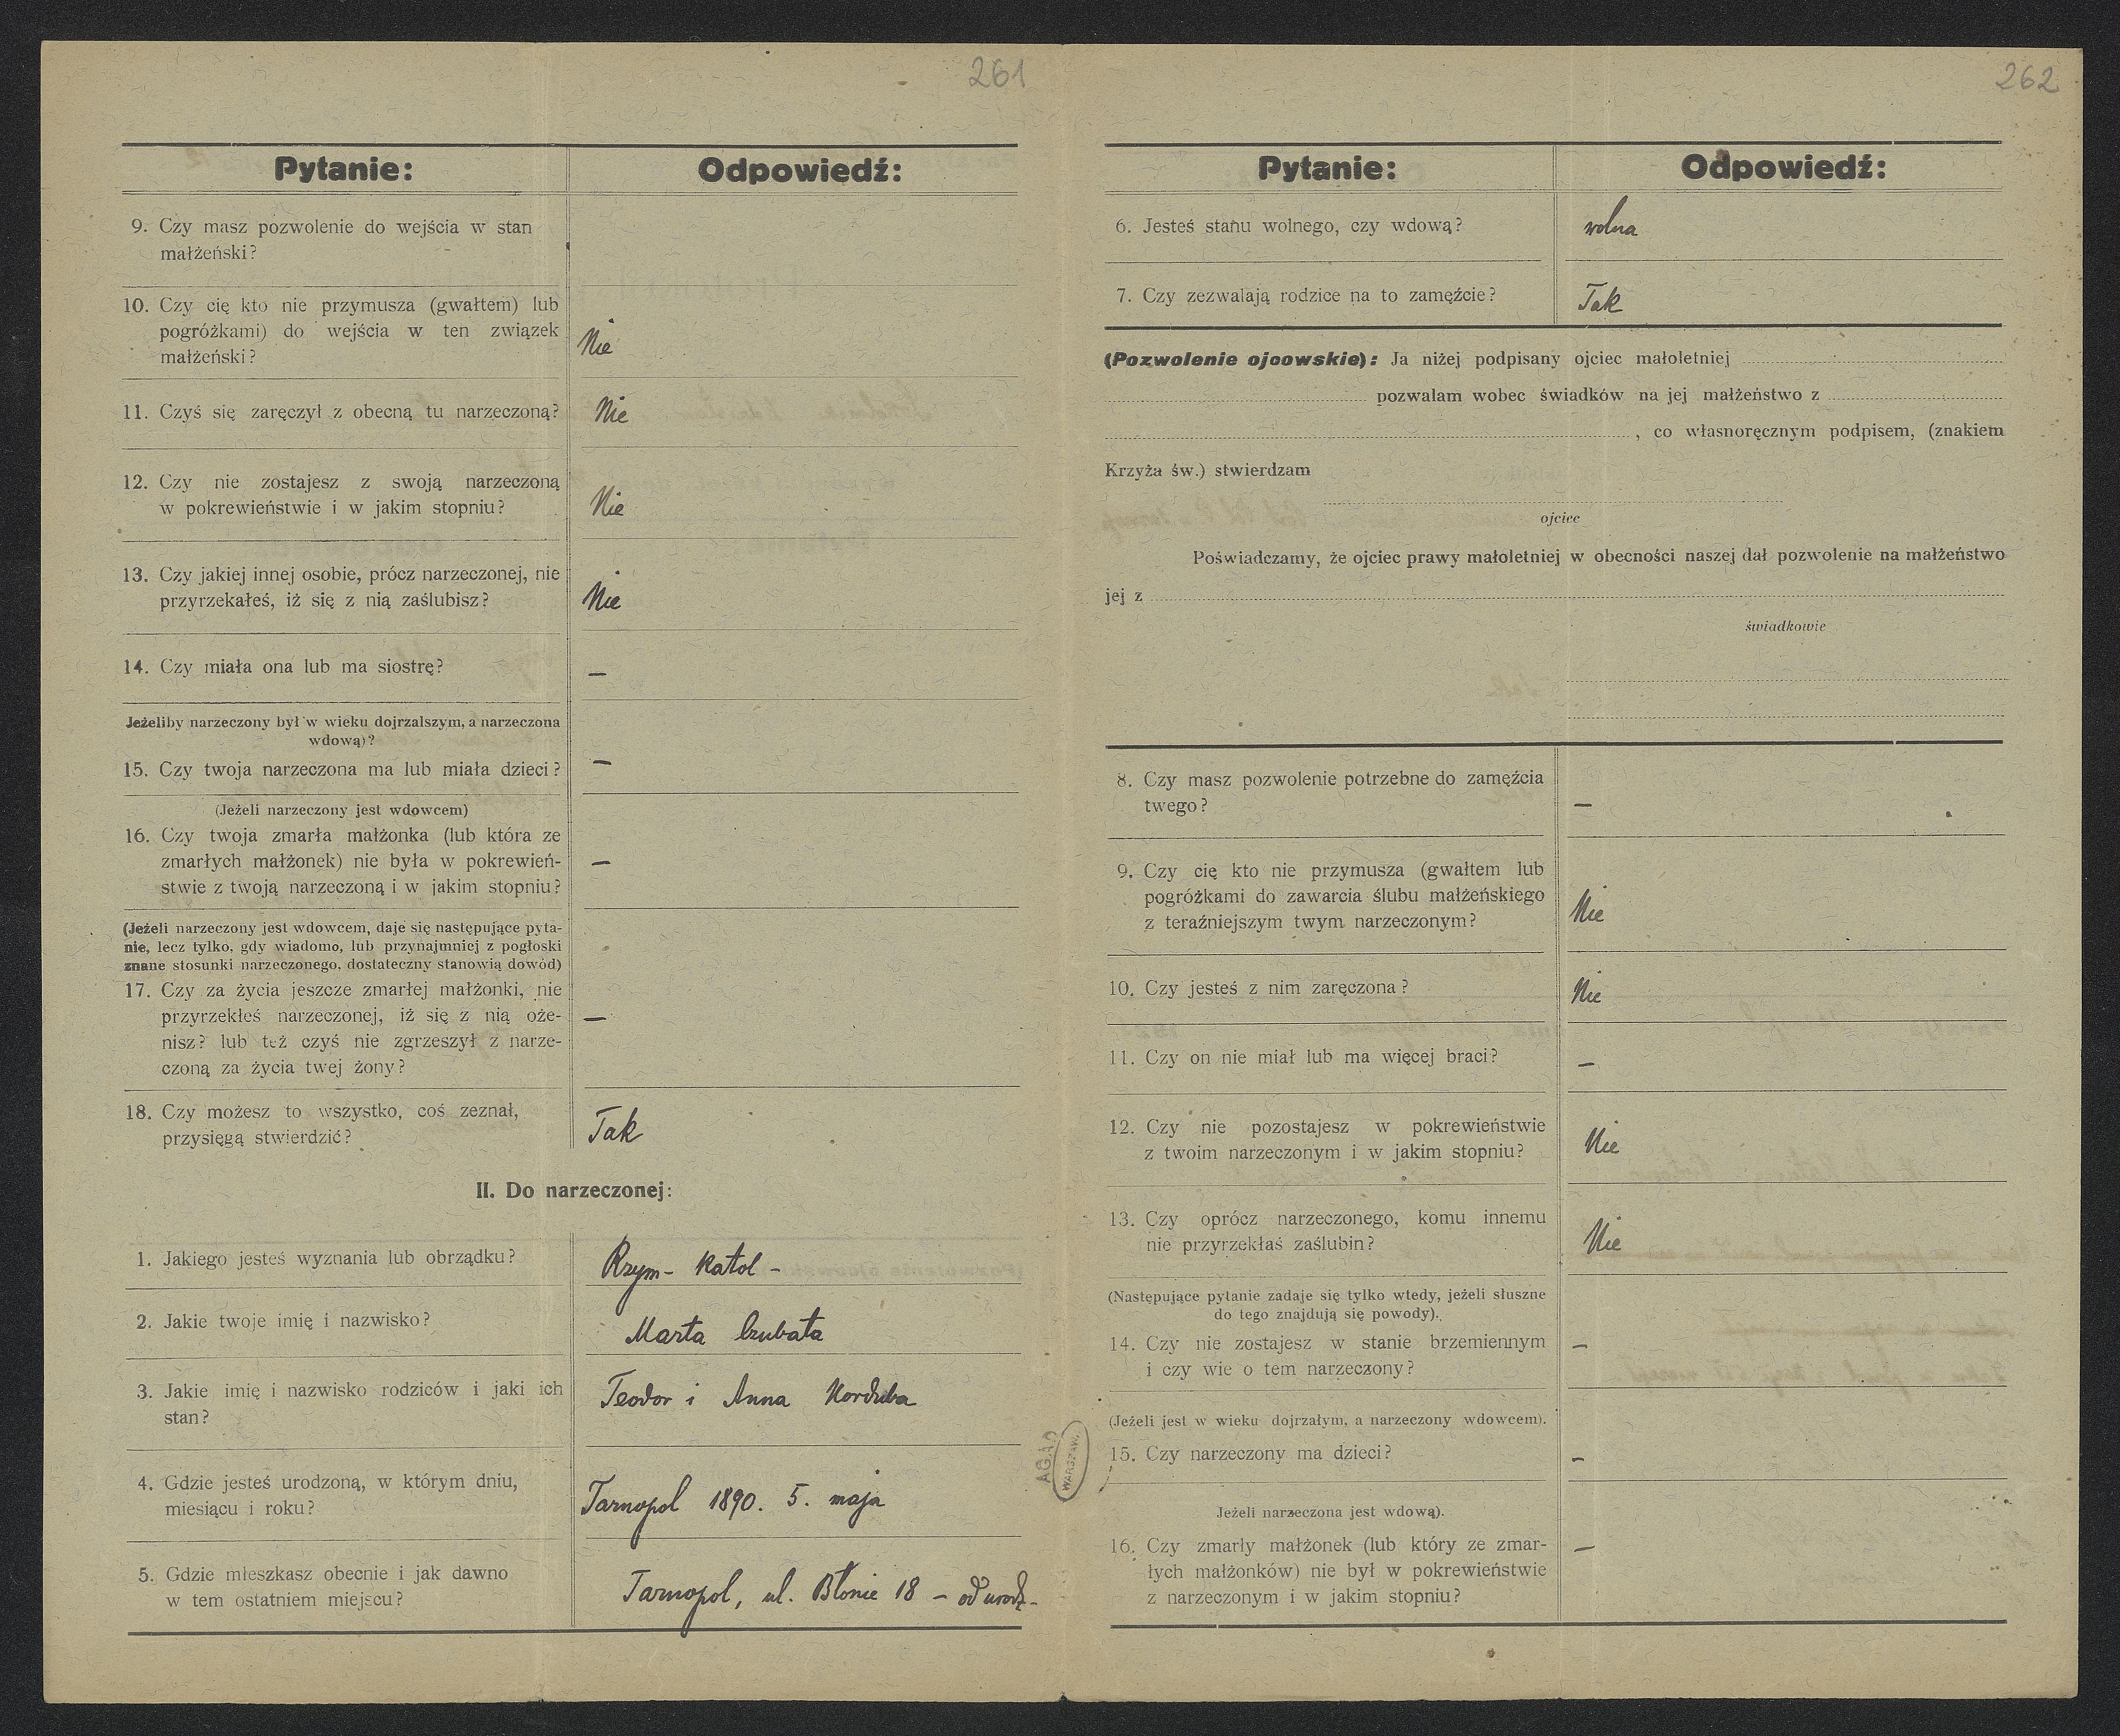 261
Pytanie: Odpowiedź:
9. Czy masz pozwolenie do wejścia w stan
małżeński?
10. Czy cię kto nie przymusza (gwałtem) lub
pogróżkami) do wejścia w ten związek
małżeński? Nie
11. Czyś się zaręczył z obecną tu narzeczoną? Nie
12. Czy nie zostajesz z swoją narzeczoną
w pokrewieństwie i w jakim stopniu? Nie
13. Czy jakiej innej osobie, prócz narzeczonej, nie
przyrzekałeś, iż się z nią zaślubisz? Nie
14. Czy miała ona lub ma siostrę? —
Jeżeliby narzeczony był w wieku dojrzalszym, a narzeczona
wdową)?
15. Czy twoja narzeczona ma lub miała dzieci? —
(Jeżeli narzeczony jest wdowcem)
16. Czy twoja zmarła małżonka (lub która ze
zmarłych małżonek) nie była w pokrewień- —
stwie z twoją narzeczoną i w jakim stopniu?
(Jeżeli narzeczony jest wdowcem, daje się następujące pyta-
nie, lecz tylko, gdy wiadomo, lub przynajmniej z pogłoski
znane stosunki narzeczonego, dostateczny stanowią dowód)
17. Czy za życia jeszcze zmarłej małżonki, nie
przyrzekłeś narzeczonej, iż się z nią oże- —
nisz? lub też czyś nie zgrzeszył z narze-
czoną za życia twej żony?
18. Czy możesz to wszystko, coś zeznał,
przysięgą stwierdzić? Tak
II. Do narzeczonej:
1. Jakiego jesteś wyznania lub obrządku? Rzym- Katol -
2. Jakie twoje imię i nazwisko? Marta Czubata
3. Jakie imię i nazwisko rodziców i jaki ich Teodor i Anna Korduba
stan?
4. Gdzie jesteś urodzoną, w którym dniu,
miesiącu i roku? Tarnopol 1890. 5. maja
5. Gdzie mieszkasz obecnie i jak dawno
w tem ostatniem miejscu? Tarnopol, ul. Błonie 18 - od urodz-
AGAD
WARSZAW.
262
Pytanie: Odpowiedź:
6. Jesteś stanu wolnego, czy wdową? wolna
7. Czy zezwalają rodzice na to zamęźcie? Tak
(Pozwolenie ojcowskie): Ja niżej podpisany ojciec małoletniej
pozwalam wobec świadków na jej małżeństwo z
, co własnoręcznym podpisem, (znakiem
Krzyża św.) stwierdzam
ojciec
Poświadczamy, że ojciec prawy małoletniej w obecności naszej dał pozwolenie na małżeństwo
jej z
świadkowie
8. Czy masz pozwolenie potrzebne do zamęźcia
twego? —
9. Czy cię kto nie przymusza (gwałtem lub
pogróżkami do zawarcia ślubu małżeńskiego
z teraźniejszym twym narzeczonym? Nie
10. Czy jesteś z nim zaręczona? Nie
11. Czy on nie miał lub ma więcej braci? —
12. Czy nie pozostajesz w pokrewieństwie
z twoim narzeczonym i w jakim stopniu? Nie
13. Czy oprócz narzeczonego, komu innemu
nie przyrzekłaś zaślubin? Nie
(Następujące pytanie zadaje się tylko wtedy, jeżeli słuszne
do tego znajdują się powody).
14. Czy nie zostajesz w stanie brzemiennym —
i czy wie o tem narzeczony?
(Jeżeli jest w wieku dojrzałym, a narzeczony wdowcem).
15. Czy narzeczony ma dzieci? -
Jeżeli narzeczona jest wdową).
16. Czy zmarły małżonek (lub który ze zmar- —
łych małżonków) nie był w pokrewieństwie
z narzeczonym i w jakim stopniu?